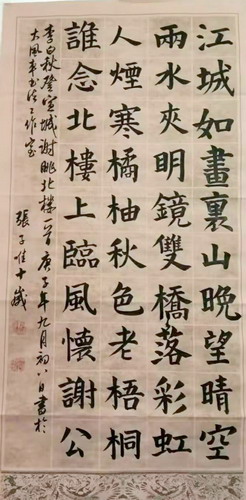 江城如畫裏山晚望晴空
雨水夾明鏡雙橋落彩虹
人煙寒橘柚秋色老梧桐
誰念北樓上臨風懷謝公
李白秋登宣城謝朓北樓一首 庚子年九月初八日書於
大風車書法工作室
張子惟十歲